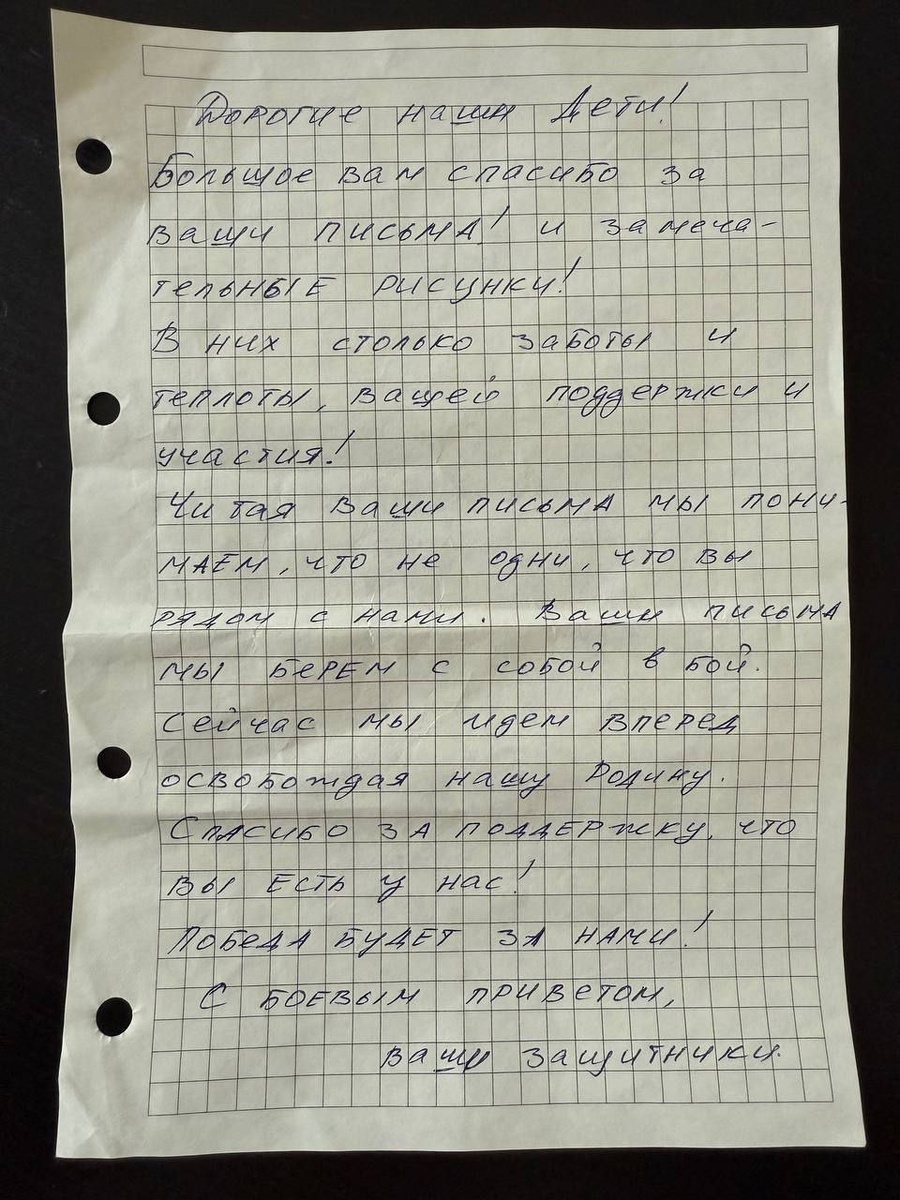 Дорогие наши Дети!
Большое вам спасибо за
ваши письма! и замеча-
тельные рисунки!
В них столько заботы и
теплоты, вашей поддержки и
участия!
Читая Ваши письма мы пони-
маем, что не одни, что вы
рядом с нами. Ваши письма
мы берем с собой в бой.
Сейчас мы идем вперед
освобождая нашу Родину.
Спасибо за поддержку, что
вы есть у нас!
Победа будет за нами!
С боевым приветом,
ваши защитники.